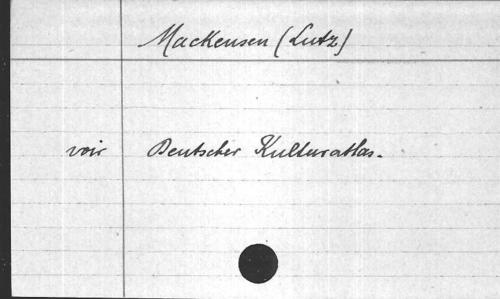 Mackensen (Lutz)
voir Deutscher Kulturatlas.